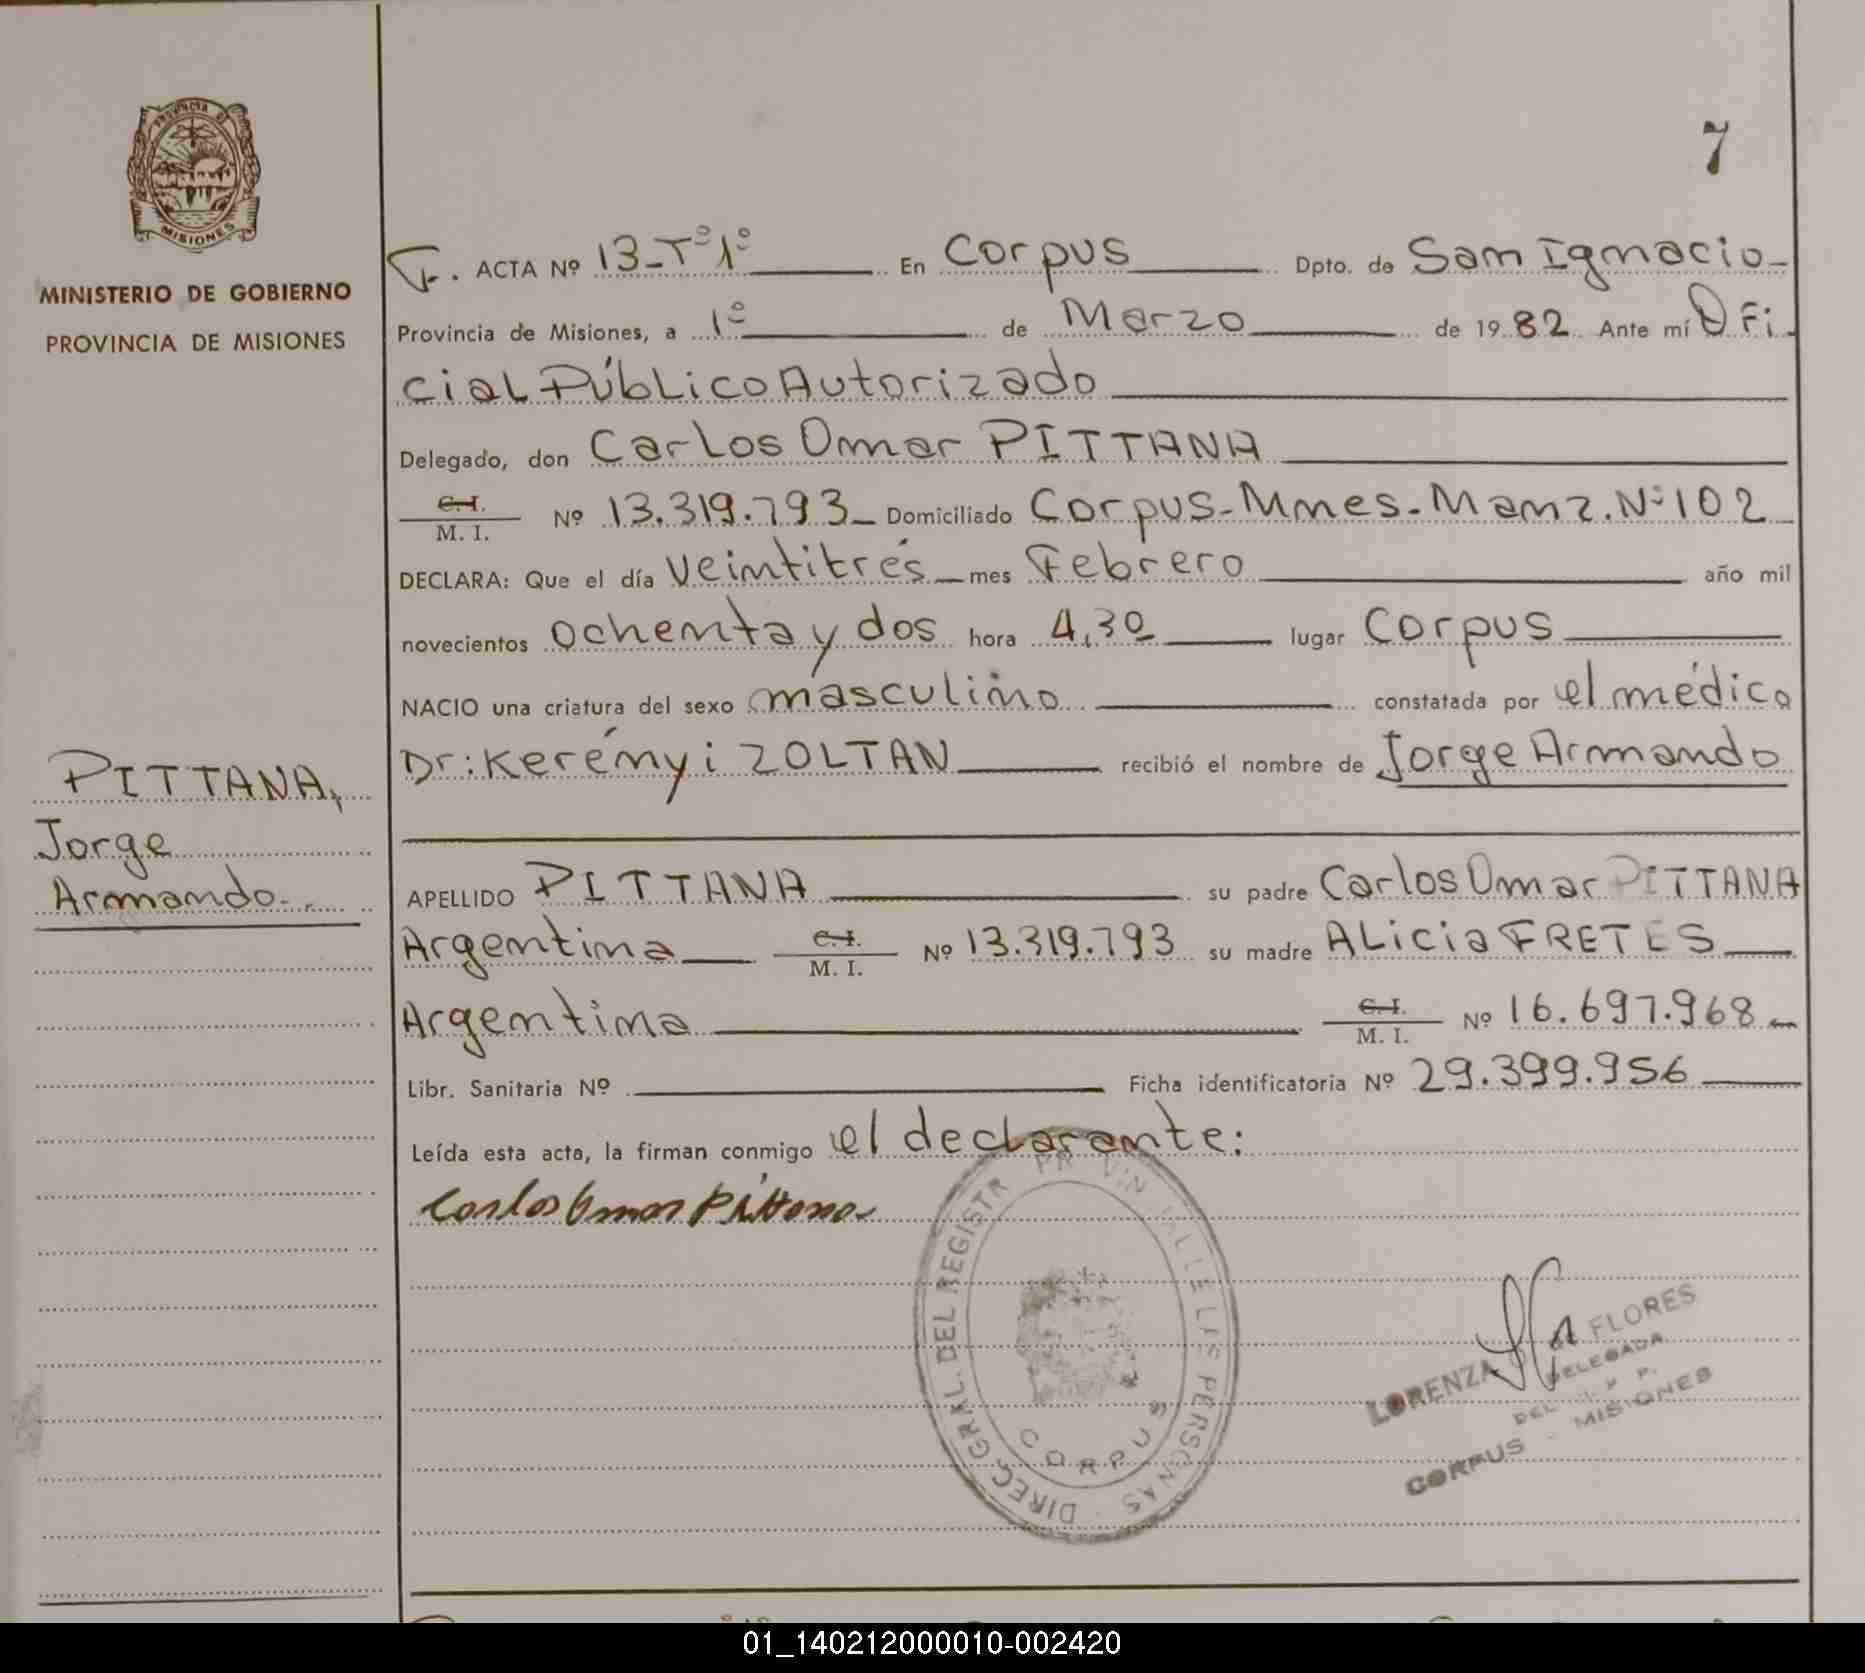 7
PROVINCIA DE
MISIONES
MINISTERIO DE GOBIERNO
PROVINCIA DE MISIONES
ACTA Nº 13-Tº1º En Corpus Dpto. de San Ignacio-
Provincia de Misiones, a 1º de Marzo de 1982 Ante mí Ofi
cial Público Autorizado
Delegado, don Carlos Omar PITTANA
C.I.
M. I. Nº 13.319.793- Domiciliado Corpus-Mnes-Manz.Nº102
DECLARA: Que el día veintitrés mes Febrero año mil
novecientos ochenta y dos hora 4,30 lugar Corpus
NACIO una criatura del sexo masculino constatada por el médico
Dr: Kerényi ZOLTAN recibió el nombre de Jorge Armando
PITTANA,
Jorge
Armando.
APELLIDO PITTANA su padre Carlos Omar PITTANA
Argentina C.I.
M. I. Nº 13.319.793 su madre ALicia FRETES
Argentina C.I.
M. I. Nº 16.697.968
Libr. Sanitaria Nº Ficha identificatoria Nº 29.399.956
Leída esta acta, la firman conmigo el declarante:
Carlos Omar Pittana
DIREC. GRAL. DEL REGISTR PR VIN LLE LAS PERSONAS
CORPUS
LORENZA FLORES
DELEGADA
DEL P.
CORPUS - MISIONES
01_140212000010-002420